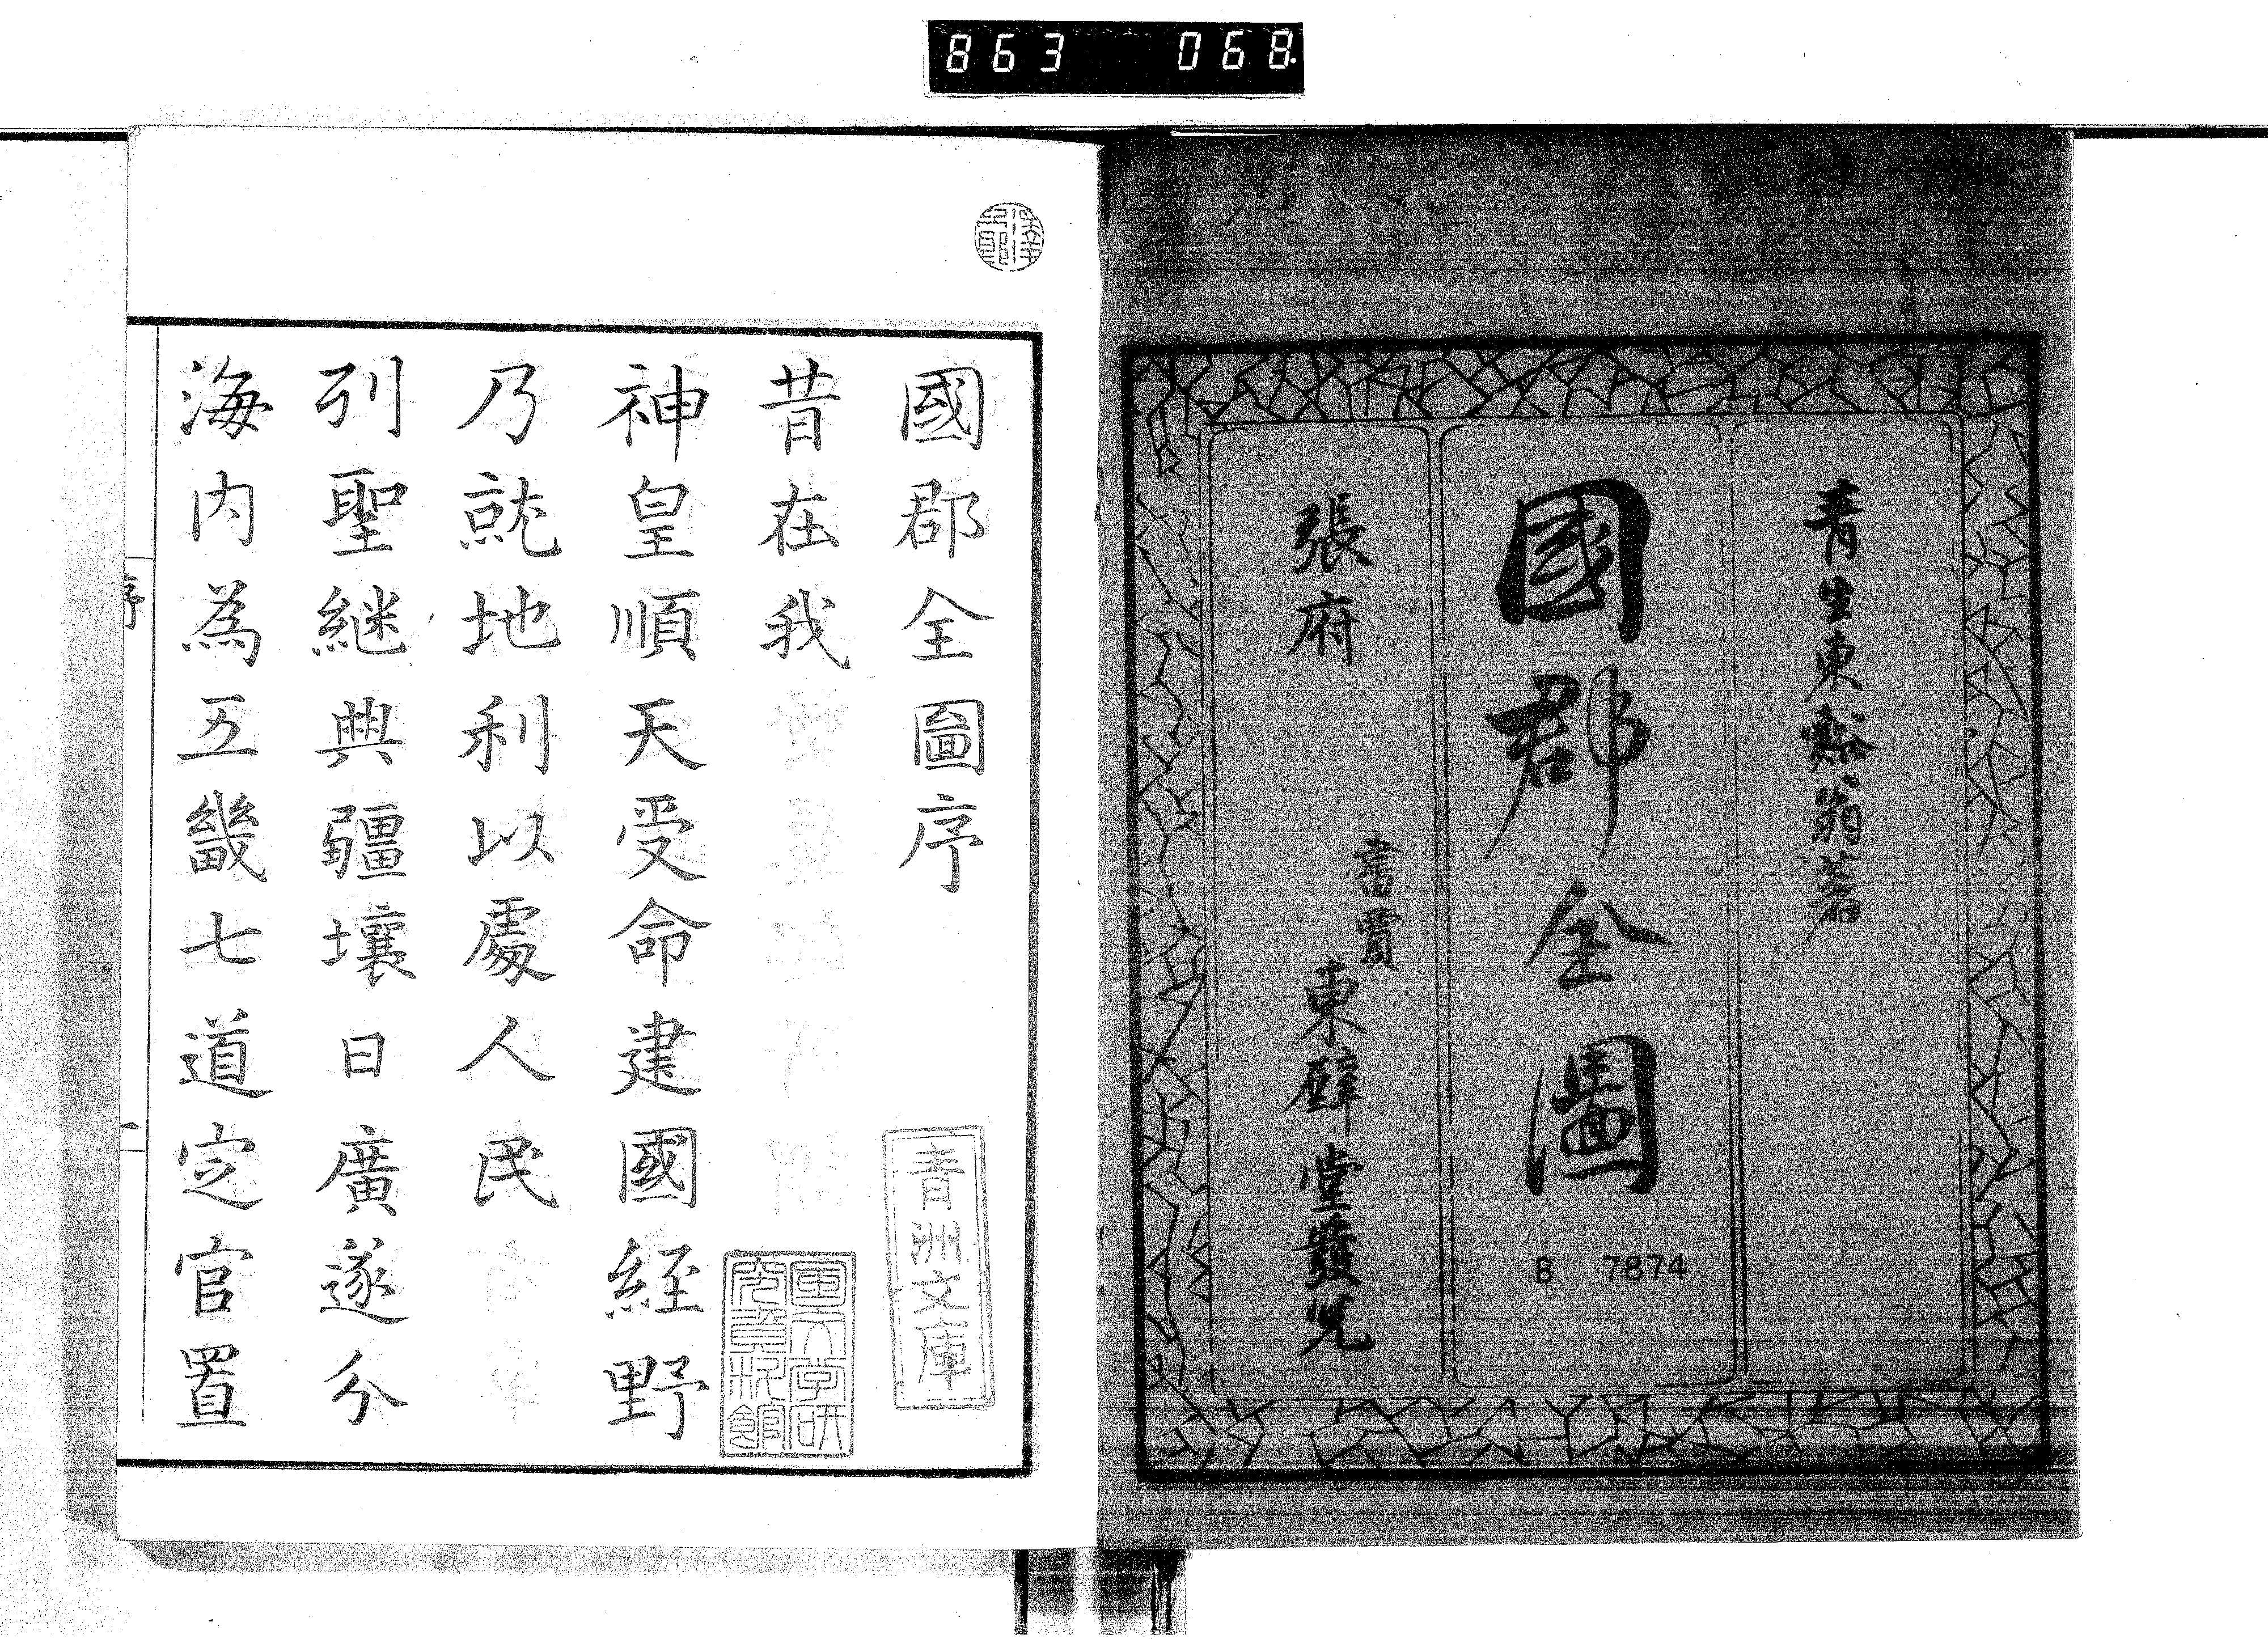 863 068
青生東谿翁著
國郡全圖
B 7874
張府
書賈
東壁堂發兌
國郡全圖序
青洲文庫
昔在我
神皇順天受命建國経野
乃就地利以處人民
列聖継興疆壤日廣遂分
海内為五畿七道定官置
序
一